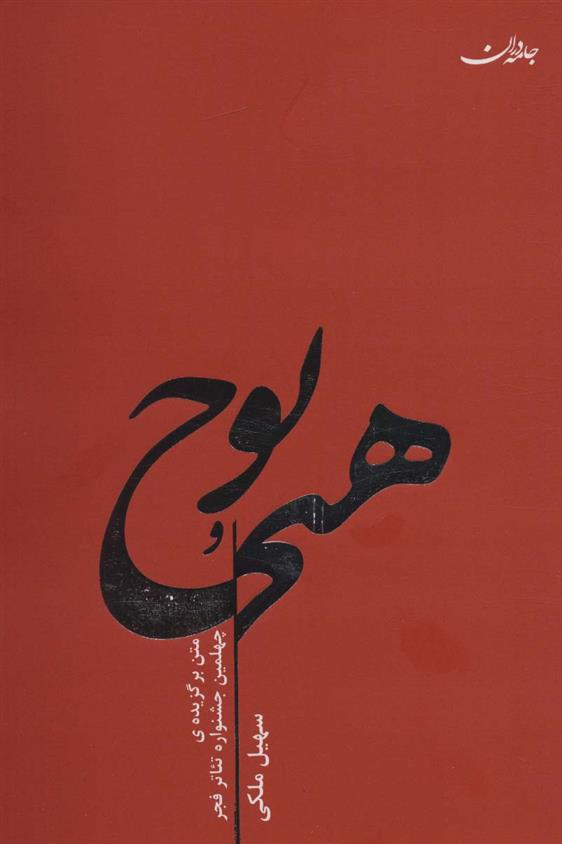 جامه‌دران
هیچ
و
پوچ
متن برگزیده‌ی
چهلمین جشنواره تئاتر فجر
سهیل ملکی